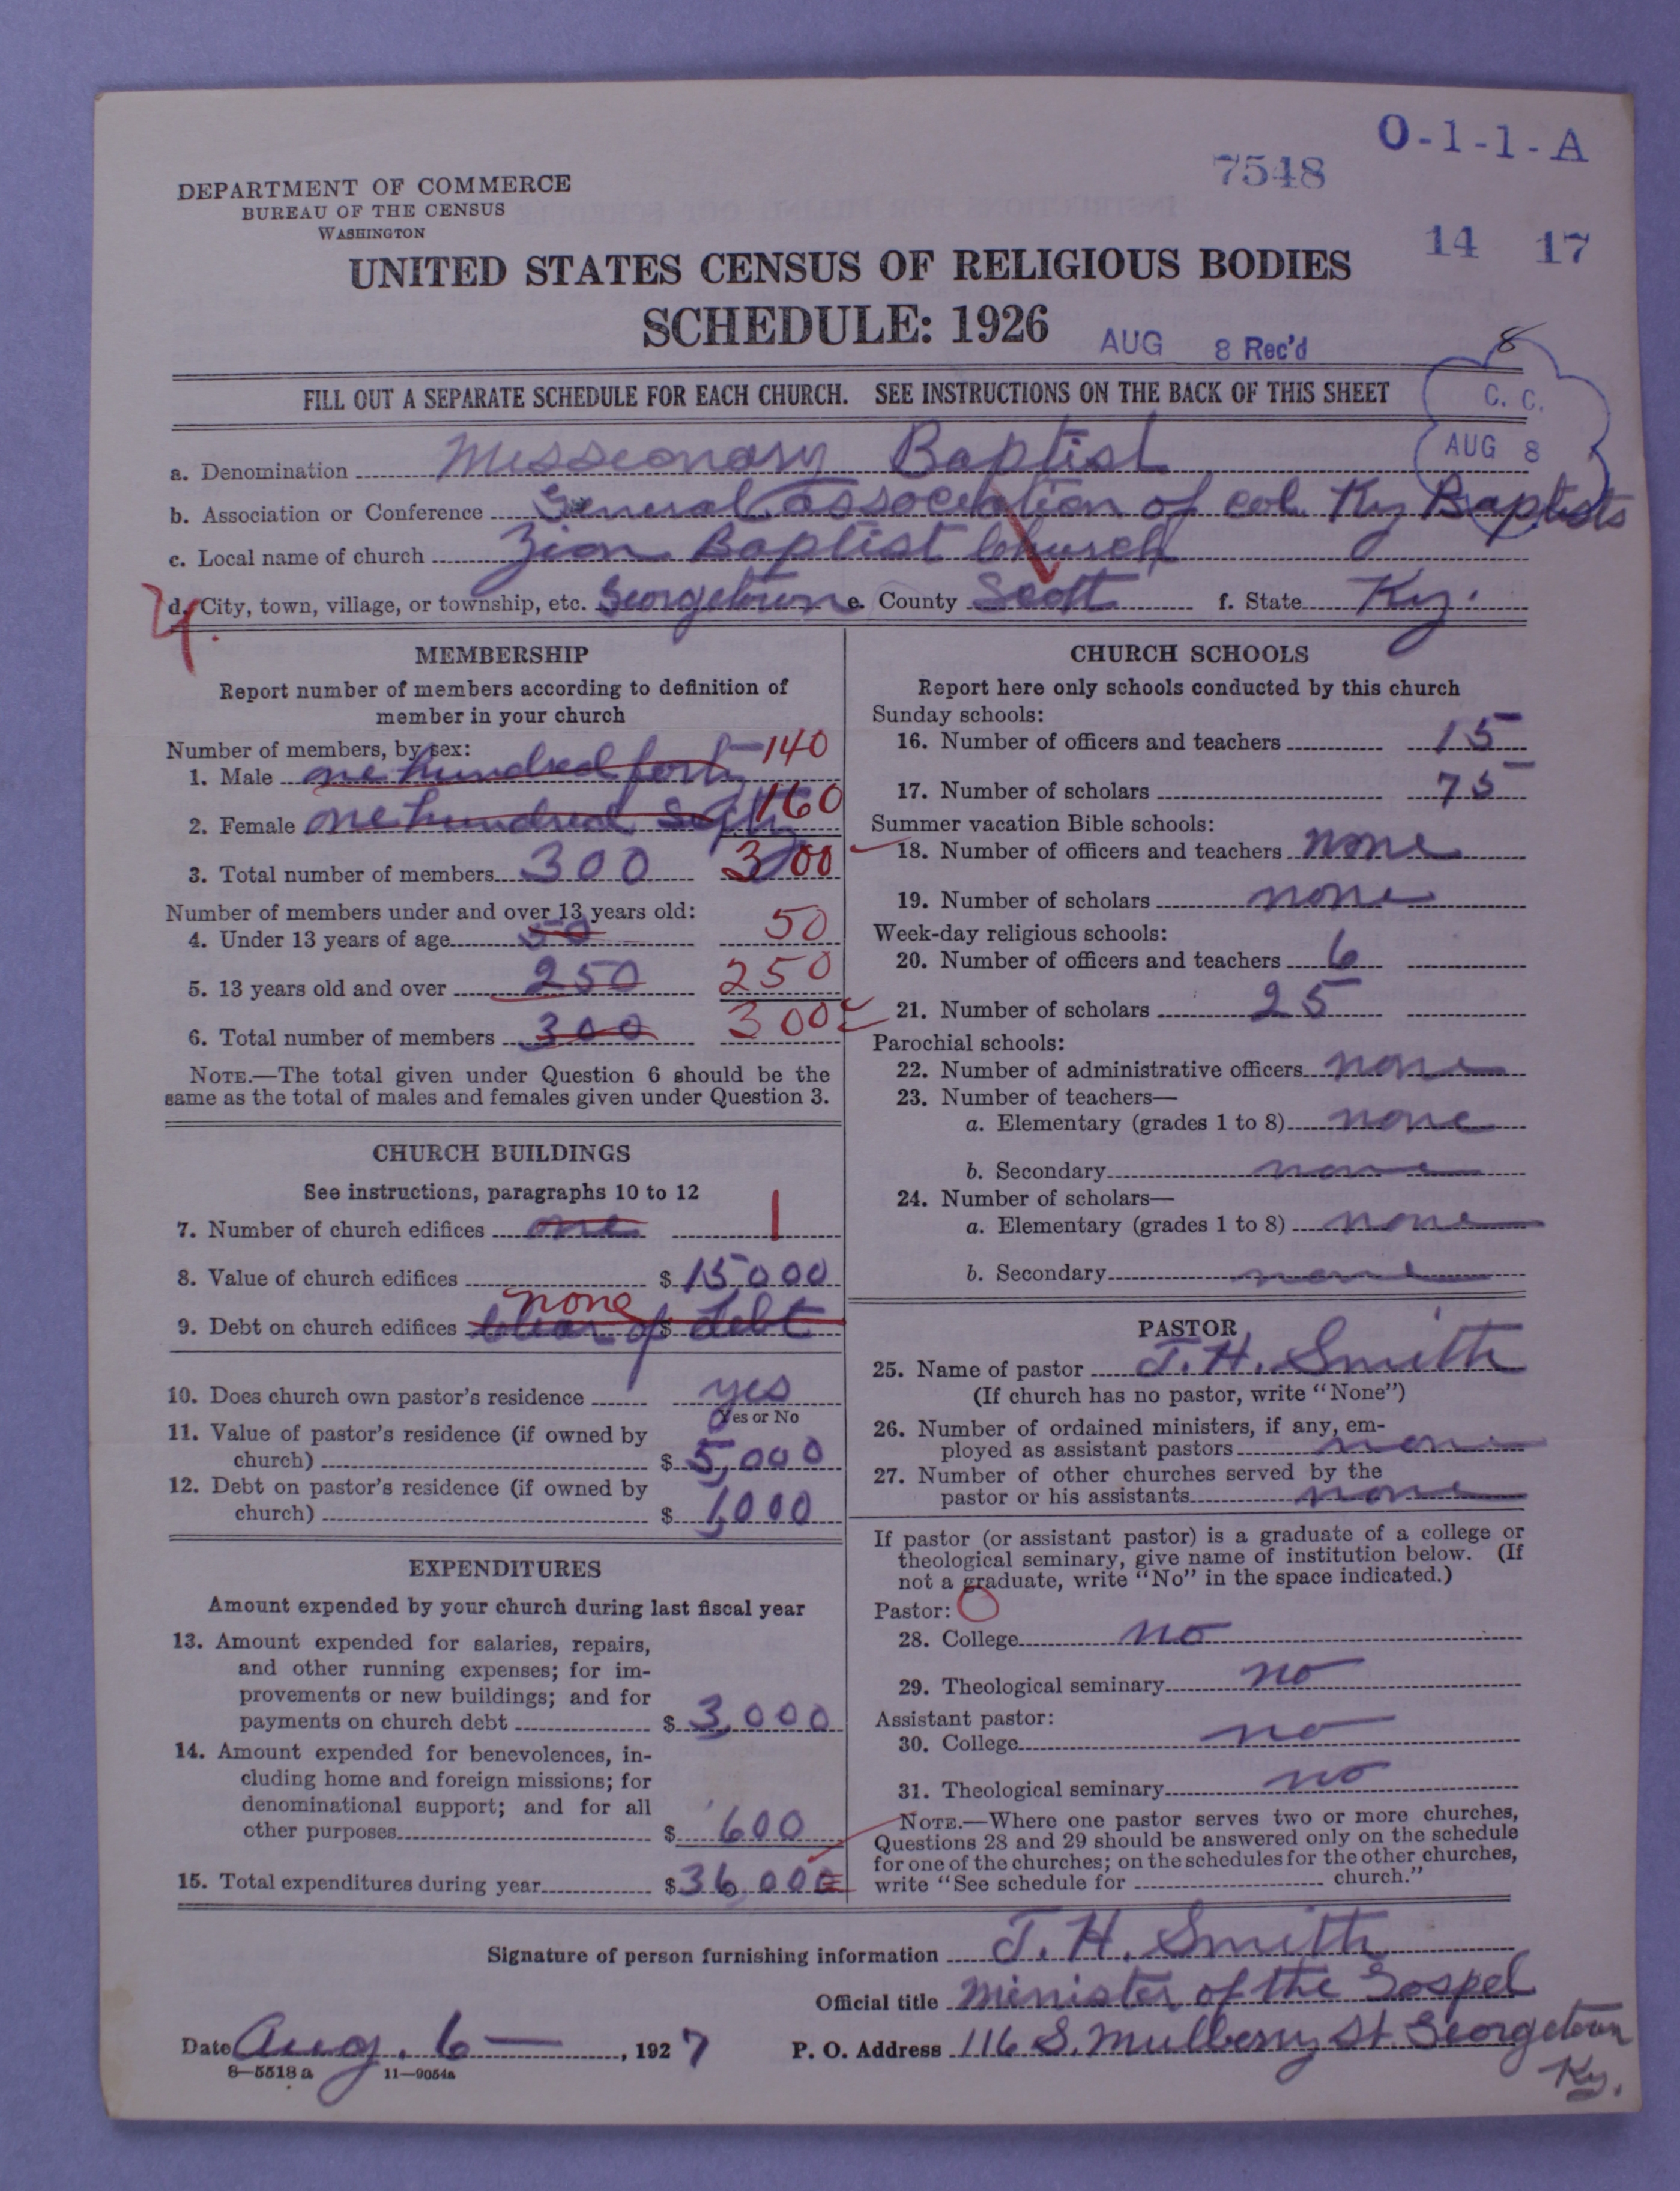 O-1-1-A
7548
DEPARTMENT OF COMMERCE
BUREAU OF THE CENSUS
WASHINGTON
14 17
UNITED STATES CENSUS OF RELIGIOUS BODIES
SCHEDULE: 1926
AUG 8 Rec'd
8
FILL OUT A SEPARATE SCHEDULE FOR EACH CHURCH. SEE INSTRUCTIONS ON THE BACK OF THIS SHEET
C. C.
AUG 8
a. Denomination Missionary Baptist
b. Association or Conference General Association of Col. Ky Baptists
c. Local name of church Zion Baptist Church
d. City, town, village, or township, etc. Georgetown e. County Scott f. State Ky.
4.
MEMBERSHIP
Report number of members according to definition of
member in your church
Number of members, by sex:
1. Male one hundred forty 140
2. Female one hundred sixty 160
3. Total number of members 300 300
Number of members under and over 13 years old:
4. Under 13 years of age 50 50
5. 13 years old and over 250 250
6. Total number of members 300 300
NOTE.—The total given under Question 6 should be the
same as the total of males and females given under Question 3.
CHURCH BUILDINGS
See instructions, paragraphs 10 to 12
7. Number of church edifices one 1
8. Value of church edifices $ 15000
none
9. Debt on church edifices Clear of $ debt
10. Does church own pastor's residence yes
Yes or No
11. Value of pastor's residence (if owned by
church) $ 5,000
12. Debt on pastor's residence (if owned by
church) $ 1,000
EXPENDITURES
Amount expended by your church during last fiscal year
13. Amount expended for salaries, repairs,
and other running expenses; for im-
provements or new buildings; and for
payments on church debt $ 3,000
14. Amount expended for benevolences, in-
cluding home and foreign missions; for
denominational support; and for all
other purposes $ 600
15. Total expenditures during year $ 36,000
CHURCH SCHOOLS
Report here only schools conducted by this church
Sunday schools:
16. Number of officers and teachers 15
17. Number of scholars 75
Summer vacation Bible schools:
18. Number of officers and teachers none
19. Number of scholars none
Week-day religious schools:
20. Number of officers and teachers 6
21. Number of scholars 25
Parochial schools:
22. Number of administrative officers none
23. Number of teachers—
a. Elementary (grades 1 to 8) none
b. Secondary none
24. Number of scholars—
a. Elementary (grades 1 to 8) none
b. Secondary none
PASTOR
25. Name of pastor J. H. Smith
(If church has no pastor, write "None")
26. Number of ordained ministers, if any, em-
ployed as assistant pastors none
27. Number of other churches served by the
pastor or his assistants none
If pastor (or assistant pastor) is a graduate of a college or
theological seminary, give name of institution below. (If
not a graduate, write "No" in the space indicated.)
Pastor: O
28. College no
29. Theological seminary no
Assistant pastor:
30. College no
31. Theological seminary no
NOTE.—Where one pastor serves two or more churches,
Questions 28 and 29 should be answered only on the schedule
for one of the churches; on the schedules for the other churches,
write "See schedule for church."
Signature of person furnishing information J. H. Smith
Official title Minister of the Gospel
Date Aug. 6 —, 1927 P. O. Address 116 S. Mulberry St. Georgetown
Ky.
8—5518 a 11—9054a